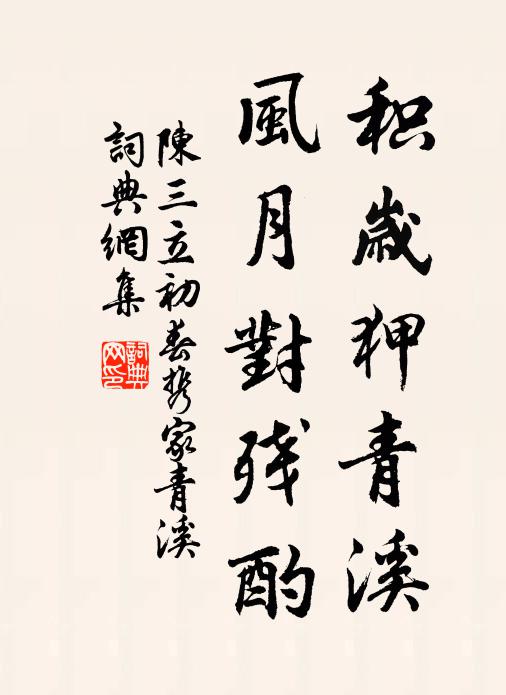 积歲狎青溪
風月對残酌
陳三立初春携家青溪
詞典網集
詞典网印